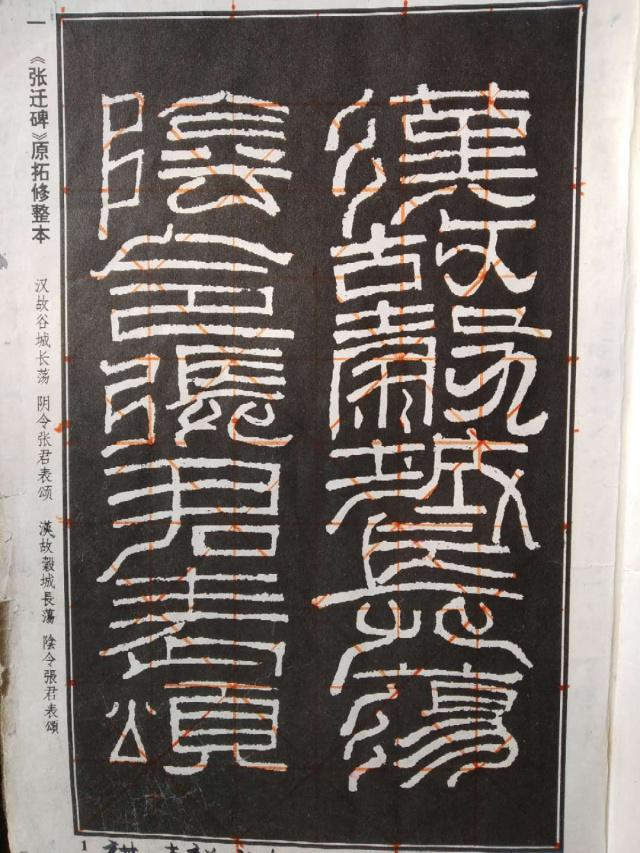 漢故穀城長蕩
陰令張君表頌
一 《张迁碑》原拓修整本
汉故谷城长荡 阴令张君表颂 漢故穀城長蕩 陰令張君表頌
1